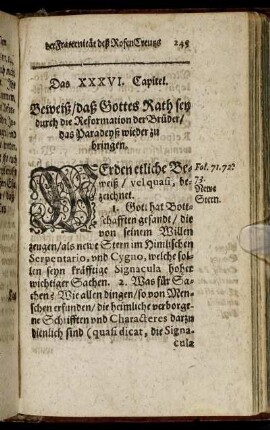 der Fraternität deß RosenCreutz 245
Das XXXVI. Capitel.
Beweiß / daß Gottes Rath sey
durch die Reformation der Brüder /
das Paradeyß wieder zu
bringen.
WErden etliche Be-
weiß / vel quasi, be-
zeichnet.
1. Gott hat Bott-
schafften gesandt / die
von seinem Willen
zeugen / als newe Stern im Himlischen
Serpentario, und Cygno, welche sol-
len seyn kräfftige Signacula hoher
wichtiger Sachen. 2. Was für Sa-
chen? Wie allen dingen / so von Men-
schen erfunden / die heimliche verborge-
ne Schrifften vnd Characteres darzu
dienlich sind (quasi dicat, die Signa-
cula
Fol. 71. 72.
73.
Newe
Stern.